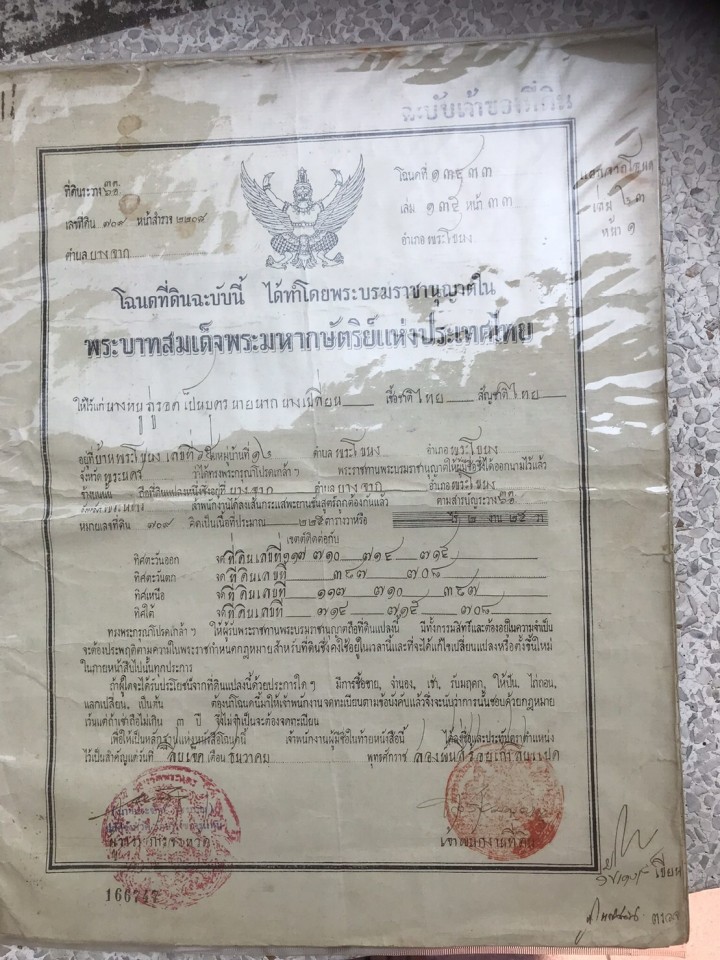 ฉะบับเจ้าของที่ดิน
ที่ดินระวาง
โฉนดที่ ๑๓๕๓๓
เลขที่ดิน ๗๐๙ หน้าสำรวจ ๒๒๐๙
เล่ม ๑๓๕ หน้า ๓๓
เล่ม ๖๓
หน้า ๑
ตำบล บางจาก
อำเภอ พระโขนง
โฉนดที่ดินฉะบับนี้ ได้ทำโดยพระบรมราชานุญาตใน
พระบาทสมเด็จพระมหากษัตริย์แห่งประเทศไทย
ให้ไว้แก่ นางหนู เป็นบุตร นายนาก เชื้อชาติ ไทย สัญชาติ ไทย
อยู่ที่บ้าน พระโขนง เลขที่ หมู่บ้านที่ ๑๒ ตำบล พระโขนง อำเภอ พระโขนง
จังหวัด พระนคร ว่าได้ทรงพระกรุณาโปรดเกล้า ฯ พระราชทานพระบรมราชานุญาตให้ผู้มีชื่อซึ่งได้ออกนามไว้แล้ว
ข้างบนนั้น ถือที่ดินแปลงหนึ่งซึ่งอยู่ที่ บางจาก ตำบล บางจาก อำเภอ พระโขนง
จังหวัด พระนคร เจ้าพนักงานได้สอบสวน ถูกต้องกันแล้ว ตามสารบัญระวาง
หมายเลขที่ดิน ๗๐๙ คิดเป็นเนื้อที่ประมาณ ๒๒๕ ตารางวาหรือ ไร่ ๒ งาน ๒๕ ว
เขตต์ติดต่อกับ
ทิศตะวันออก จด ที่ดินเลขที่ ๑๑๗ ๗๑๐ ๗๑๕
ทิศตะวันตก จด ที่ดินเลขที่ ๓๙๗ ๗๐๘
ทิศเหนือ จด ที่ดินเลขที่ ๑๑๗ ๗๑๐ ๓๙๗
ทิศใต้ จด ที่ดินเลขที่ ๗๑๕ ๗๐๘
ทรงพระกรุณาโปรดเกล้า ฯ ให้ผู้รับพระราชทานพระบรมราชานุญาตถือที่ดินแปลงนี้ มีทั้งกรรมสิทธิ์และต้องอยู่ในความจำเป็น
จะต้องประพฤติตามความในพระราชกำหนดกฎหมายสำหรับที่ดินซึ่งคงใช้อยู่ในเวลานี้และที่จะได้แก้ไขเปลี่ยนแปลงหรือตั้งขึ้นใหม่
ในภายหน้าสืบไปนั้นทุกประการ
ถ้าผู้ใดจะได้รับประโยชน์จากที่ดินแปลงนี้ด้วยประการใด ๆ มีการซื้อขาย, จำนอง, เช่า, รับมฤดก, ให้ปัน, ไถ่ถอน,
แลกเปลี่ยน, เป็นต้น ต้องนำโฉนดนี้มาให้เจ้าพนักงานจดทะเบียนตามข้อบังคับแล้วจึ่งจะนับว่าการนั้นชอบด้วยกฎหมาย
เว้นแต่ถ้าเช่าถือไม่เกิน ๓ ปี จึ่งไม่จำเป็นจะต้องจดทะเบียน
เพื่อให้เป็นหลักฐานแห่งหนังสือโฉนดนี้ เจ้าพนักงานผู้มีชื่อในท้ายหนังสือนี้ ได้ลงชื่อและประทับตราตำแหน่ง
ไว้เป็นสำคัญแต่วันที่ สิบเจ็ด เดือน ธันวาคม พุทธศักราช สองพันสี่ร้อยเก้าสิบแปด
เจ้าพนักงานที่ดิน
166747
เขียน
ตรวจ